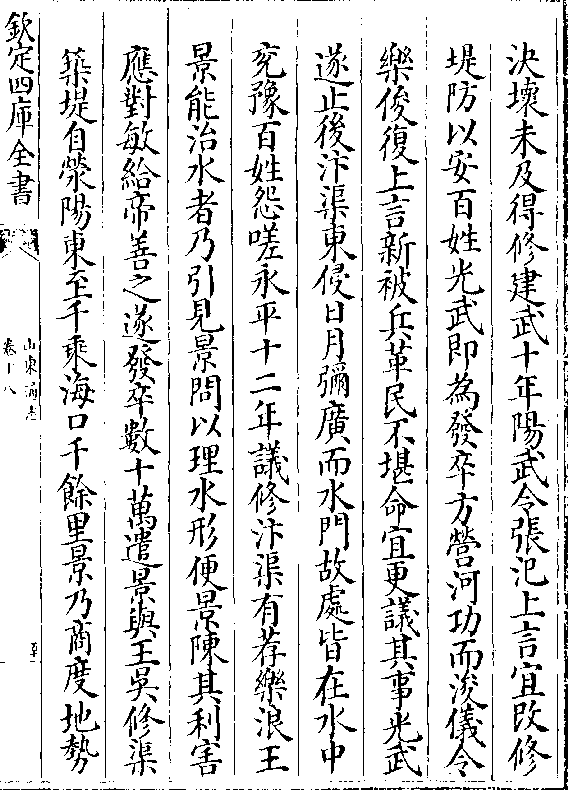 決壞未及得修建武十年陽武令張汜上言宜改修
堤防以安百姓光武即為發卒方營河功而浚儀令
樂俊復上言新被兵革民不堪命宜更議其事光武
遂止後汴渠東侵日月彌廣而水門故處皆在水中
兗豫百姓怨嗟永平十二年議修汴渠有荐樂浪王
景能治水者乃引見景問以理水形便景陳其利害
應對敏給帝善之遂發卒數十萬遣景與王吳修渠
築堤自滎陽東至千乘海口千餘里景乃商度地勢
欽定四庫全書
山東通志
卷十八